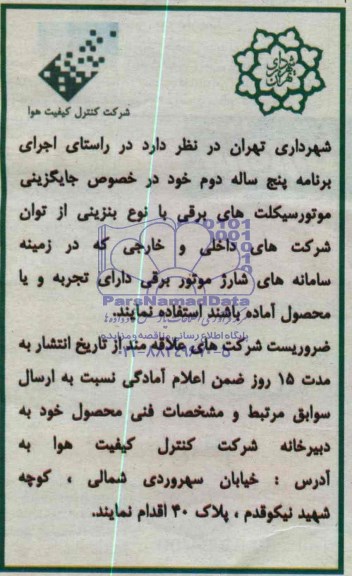 شرکت کنترل کیفیت هوا
شهرداری تهران
شهرداری تهران در نظر دارد در راستای اجرای
برنامه پنج ساله دوم خود در خصوص جایگزینی
موتورسیکلت های برقی با نوع بنزینی از توان
شرکت های داخلی و خارجی که در زمینه
سامانه های شارژ موتور برقی دارای تجربه و یا
محصول آماده باشند استفاده نمایند.
ParsNamadData
پایگاه اطلاع رسانی مناقصه و مزایده
ضروریست شرکت های علاقه مند از تاریخ انتشار به
مدت ۱۵ روز ضمن اعلام آمادگی نسبت به ارسال
سوابق مرتبط و مشخصات فنی محصول خود به
دبیرخانه شرکت کنترل کیفیت هوا به
آدرس : خیابان سهروردی شمالی ، کوچه
شهید نیکوقدم ، پلاک ۴۰ اقدام نمایند.